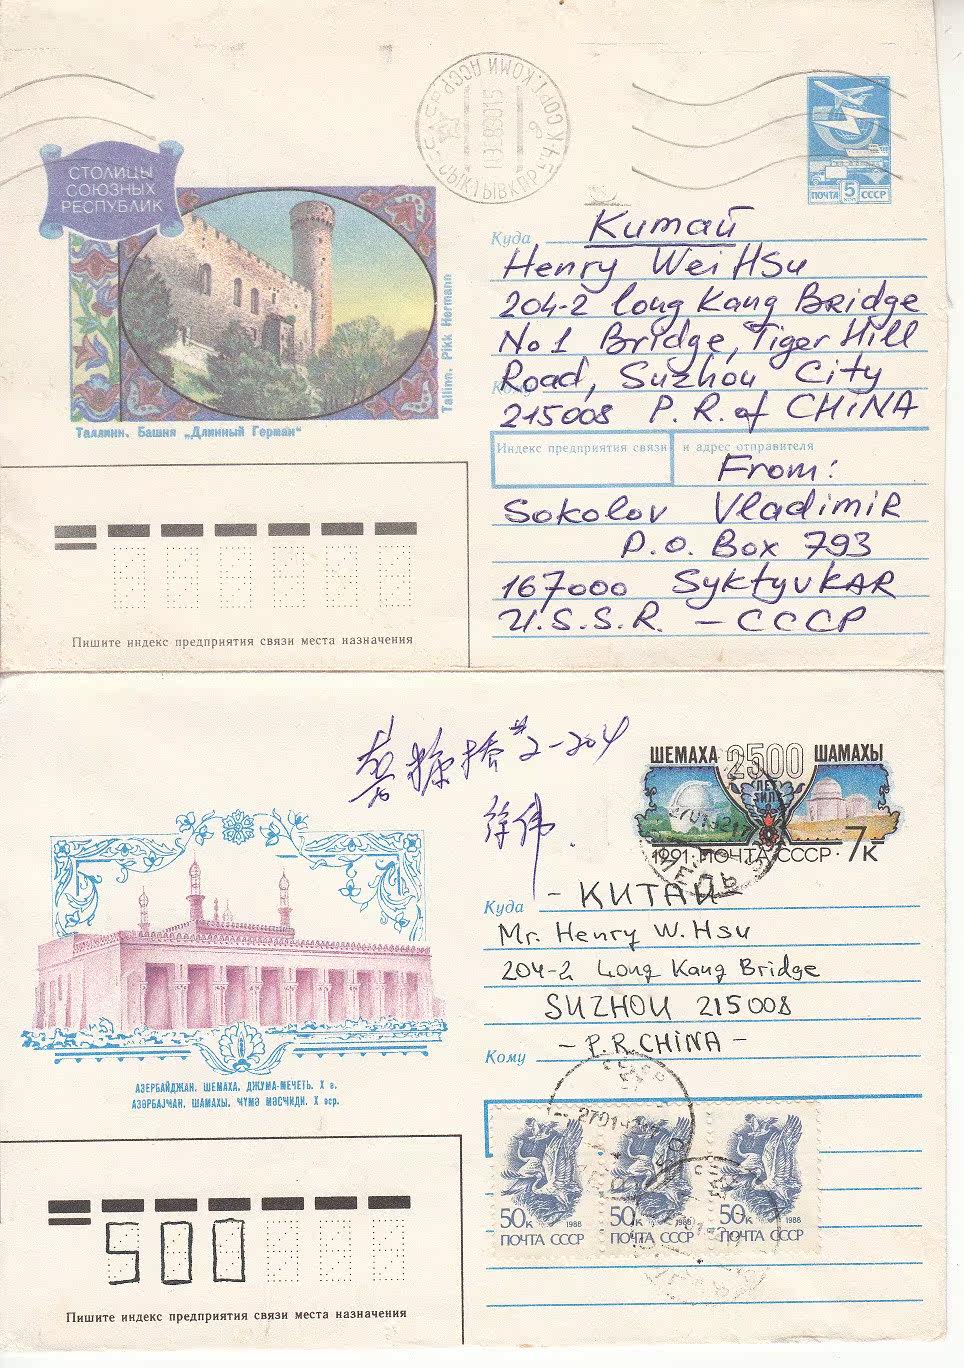 СТОЛИЦЫ
СОЮЗНЫХ
РЕСПУБЛИК
ПОЧТА 5 КОП СССР
Tallinn. Pikk Hermann
Таллинн. Башня „Длинный Герман“
Куда Китай
Henry Wei HSu
204-2 long Kang Bridge
No 1 Bridge, Tiger Hill
Кому Road, Suzhou City
215008 P. R. of CHiNA
Индекс предприятия связи и адрес отправителя
From:
Sokolov Vladimir
P.O. Box 793
167000 Syktyvkar
U.S.S.R. - СССР
Пишите индекс предприятия связи места назначения
桥 #2-204
徐伟.
ШЕМАХА 2500 ШАМАХЫ
ЛЕТ
1991 · ПОЧТА СССР · 7к
Куда - КИТАЙ
Mr. Henry W. Hsu
204-2 Long Kang Bridge
SUZHOU 215008
Кому - P.R. CHINA -
АЗЕРБАЙДЖАН. ШЕМАХА. ДЖУМА-МЕЧЕТЬ. X в.
АЗӘРБАЈҸАН. ШАМАХЫ. ҸҮМӘ МӘСҸИДИ. X әср.
270192
50к 1988
ПОЧТА СССР
50к 1988
ПОЧТА СССР
50к 1988
ПОЧТА СССР
500
Пишите индекс предприятия связи места назначения